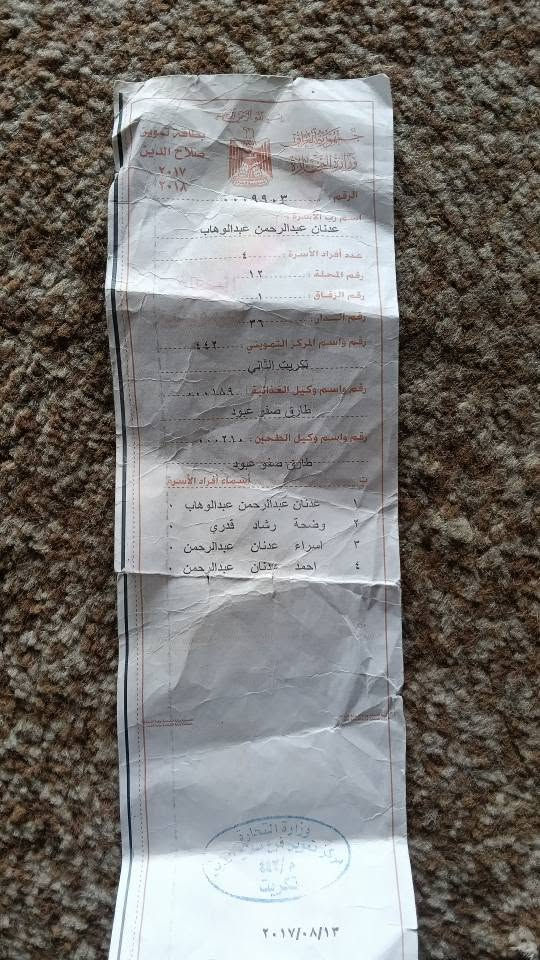 بسم الله الرحمن الرحيم
جمهورية العراق
وزارة التجارة
بطاقة تموين
صلاح الدين
٢٠١٧
٢٠١٨
الرقم : ٠٠٠٩٩٠٣
اسم رب الأسرة :
عدنان عبدالرحمن عبدالوهاب
عدد أفراد الأسرة : ٤
رقم المحلة : ١٢
رقم الزقاق : ١
رقم الدار : ٣٦
رقم واسم المركز التمويني : ٤٤٢
تكريت الثاني
رقم واسم وكيل الغذائية :
طارق صفر عبود
رقم واسم وكيل الطحين :
طارق صفر عبود
ت أسماء أفراد الأسرة
١ عدنان عبدالرحمن عبدالوهاب ٠
٢ وضحة رشاد قدري ٠
٣ اسراء عدنان عبدالرحمن ٠
٤ احمد عدنان عبدالرحمن ٠
وزارة التجارة
مركز تموين
م/٤٤٢
تكريت
٢٠١٧/٠٨/١٣